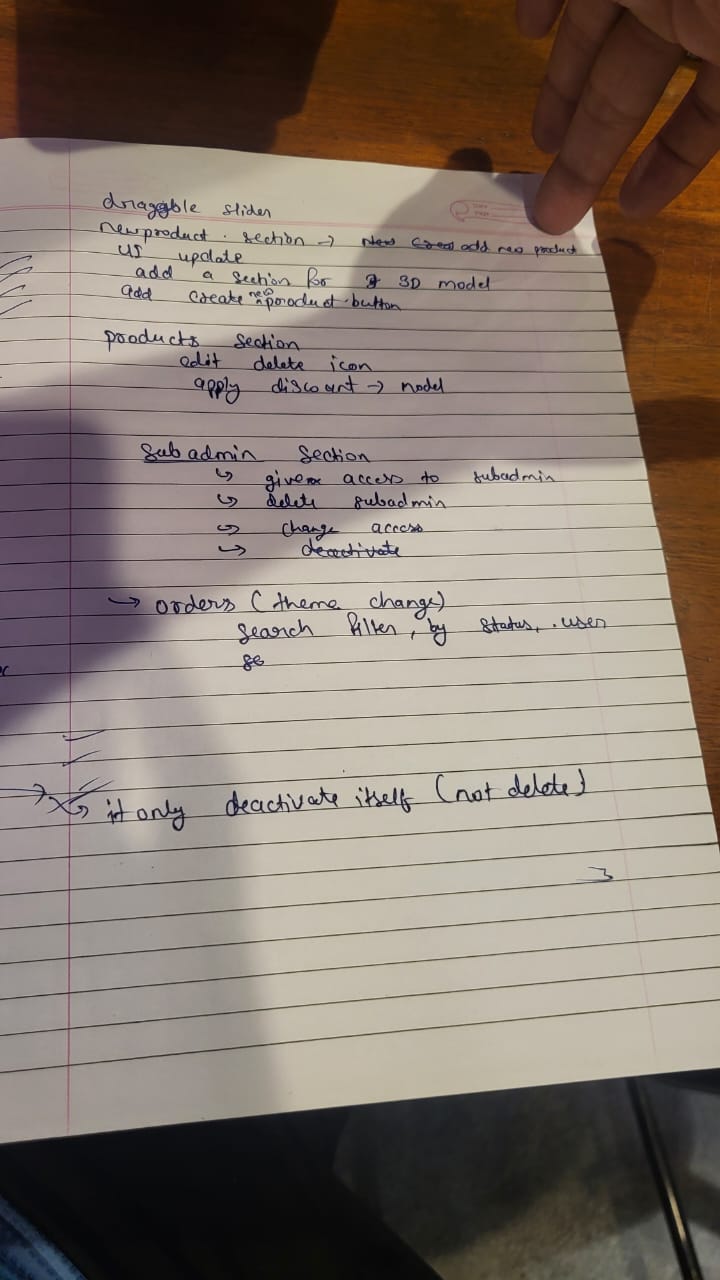 draggble slider
new product. section → add new product
UI update
add a section for 3D model
add create new product button
products section
edit delete icon
apply discount → model
Sub admin Section
↳ give access to subadmin
↳ delete subadmin
↳ change access
↳ deactivate
→ orders (theme change)
search filter, by status, .user
se
↳ it only deactivate itself (not delete)